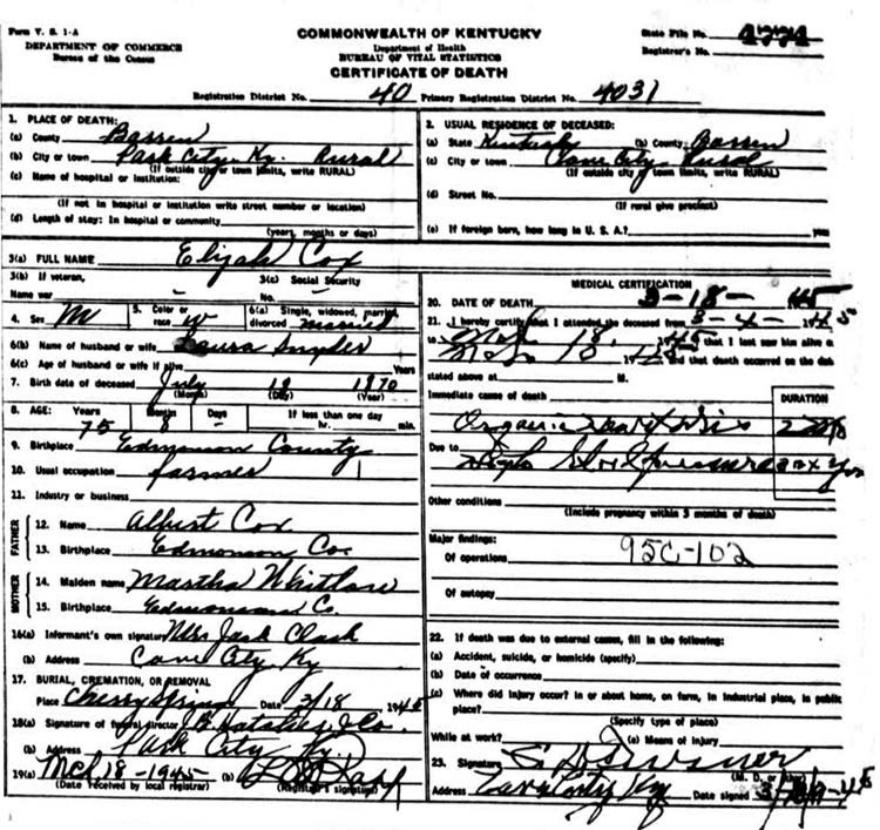 Form V. S. 1-A
DEPARTMENT OF COMMERCE
Bureau of the Census
COMMONWEALTH OF KENTUCKY
Department of Health
BUREAU OF VITAL STATISTICS
CERTIFICATE OF DEATH
State File No.
Registrar's No.
Registration District No. 40 Primary Registration District No. 4031
1. PLACE OF DEATH:
(a) County Barren
(b) City or town Park City, Ky. Rural
(If outside city or town limits, write RURAL)
(c) Name of hospital or institution:
(If not in hospital or institution write street number or location)
(d) Length of stay: In hospital or community
(years, months or days)
2. USUAL RESIDENCE OF DECEASED:
(a) State Kentucky (b) County Barren
(c) City or town Cave City, Rural
(If outside city or town limits, write RURAL)
(d) Street No.
(If rural give precinct)
(e) If foreign born, how long in U. S. A.? years
3(a) FULL NAME Elijah Cox
3(b) If veteran,
Name war -
3(c) Social Security
No. -
4. Sex M
5. Color or
race W
6(a) Single, widowed, married,
divorced married
6(b) Name of husband or wife Laura Snyder
6(c) Age of husband or wife if alive Years
7. Birth date of deceased July 18 1870
(Month) (Day) (Year)
8. AGE: Years Months Days If less than one day
75 8 - hr. min.
9. Birthplace Edmonson County
10. Usual occupation farmer
11. Industry or business
FATHER
12. Name Albert Cox
13. Birthplace Edmonson Co
MOTHER
14. Maiden name Martha Whitlow
15. Birthplace Edmonson Co.
16(a) Informant's own signature Mrs Jack Clark
(b) Address Cave City Ky
17. BURIAL, CREMATION, OR REMOVAL
Place Cherry Spring Date 3/18 1945
18(a) Signature of funeral director J.B. & Co.
(b) Address Park City Ky.
19(a) Mch 18-1945 (b)
(Date received by local registrar) (Registrar's signature)
MEDICAL CERTIFICATION
20. DATE OF DEATH 3-18-45
21. I hereby certify that I attended the deceased from 3-4- 1945
to Mch 18, 1945 that I last saw him alive on
Mch 18 1945 and that death occurred on the date
stated above at M.
Immediate cause of death DURATION
Organic heart
Due to
High blood pressure
Other conditions
(Include pregnancy within 3 months of death)
Major findings:
Of operations 95C-102
Of autopsy
22. If death was due to external causes, fill in the following:
(a) Accident, suicide, or homicide (specify)
(b) Date of occurrence
(c) Where did injury occur? In or about home, on farm, in industrial place, in public
place?
(Specify type of place)
While at work? (e) Means of injury
23. Signature
(M. D. or other)
Address Cave City Ky Date signed